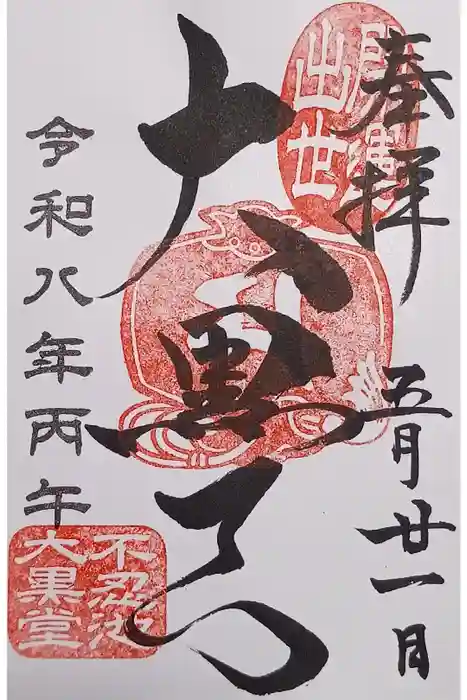 奉拝
五月廿一日
大黒天
令和八年丙午
出世
不忍池
大黒堂